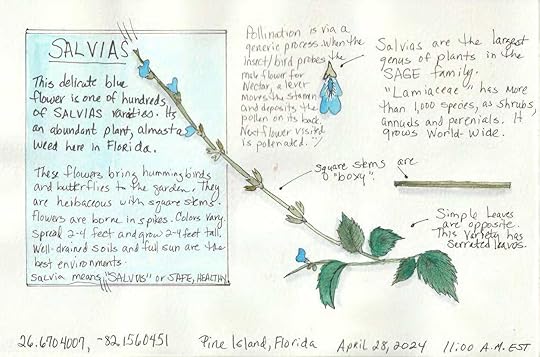 SALVIAS
This delicate blue
flower is one of hundreds
of SALVIAS varieties. Its
an abundant plant, almost a
weed here in Florida.
These flowers bring hummingbirds
and butterflies to the garden. They
are herbaceous with square stems.
Flowers are borne in spikes. Colors vary.
Spread 2-4 feet and grow 2-4 feet tall.
Well-drained soils and full sun are the
best environments.
Salvia means "SALVUS" or SAFE, HEALTHY
Pollination is via a
generic process. When the
insect/bird probes the
male flower for
Nectar, a lever
moves the stamen
and deposits the
pollen on its back.
Next flower visited
is pollenated.
Salvias are the largest
genus of plants in the
SAGE family.
"Lamiaceae" has more
than 1,000 species, as shrubs,
annuals and perenials. It
grows World-Wide.
Square stems are
"boxy".
Simple leaves
are opposite.
This variety has
Serrated leaves.
26.6704007, -82.1560451 Pine Island, Florida April 28, 2024 11:00 A.M. EST